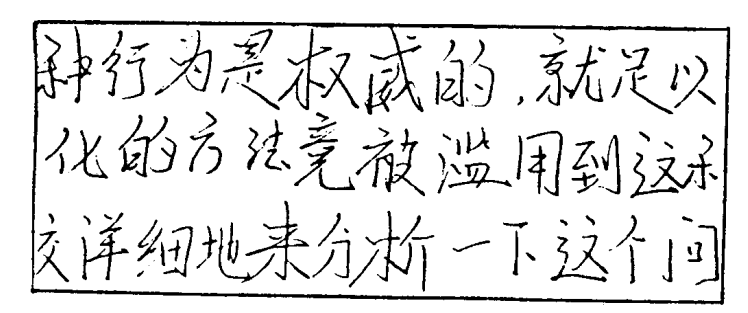 种行为是权威的,就足以
化的方法竟被滥用到这
详细地来分析一下这个问